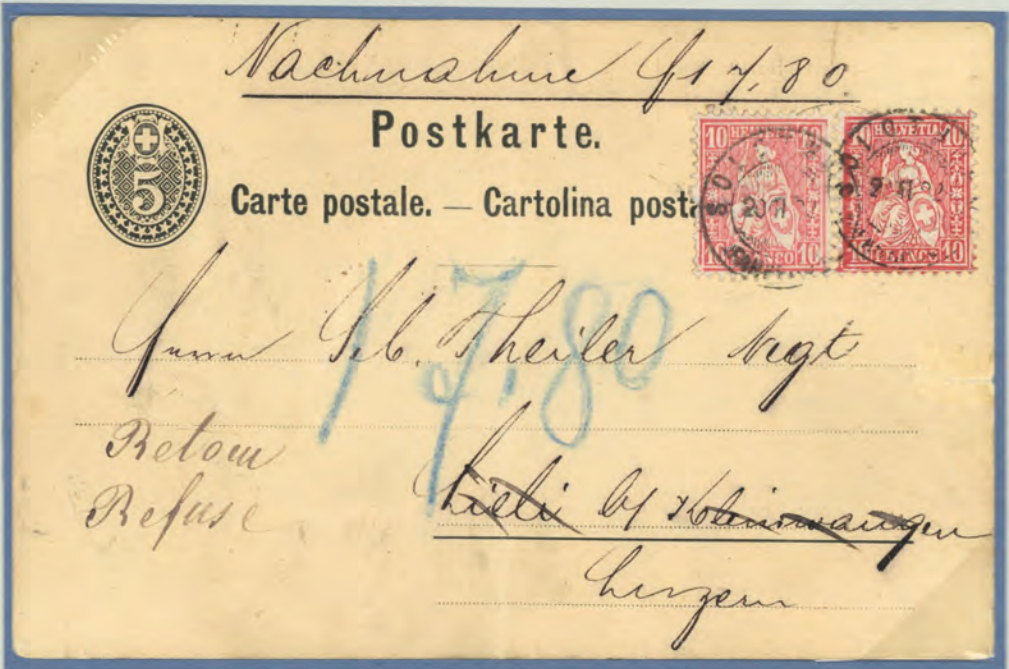 Nachnahme fr 17,80.
Postkarte.
5
Carte postale. — Cartolina posta
10 HELVETIA 10
10 FRANCO 10
10 HELVETIA 10
10 FRANCO 10
17,80
Herrn Seb. Theiler Negt
Retour
Refusé
Lieli b/ Kleinwangen
Luzern